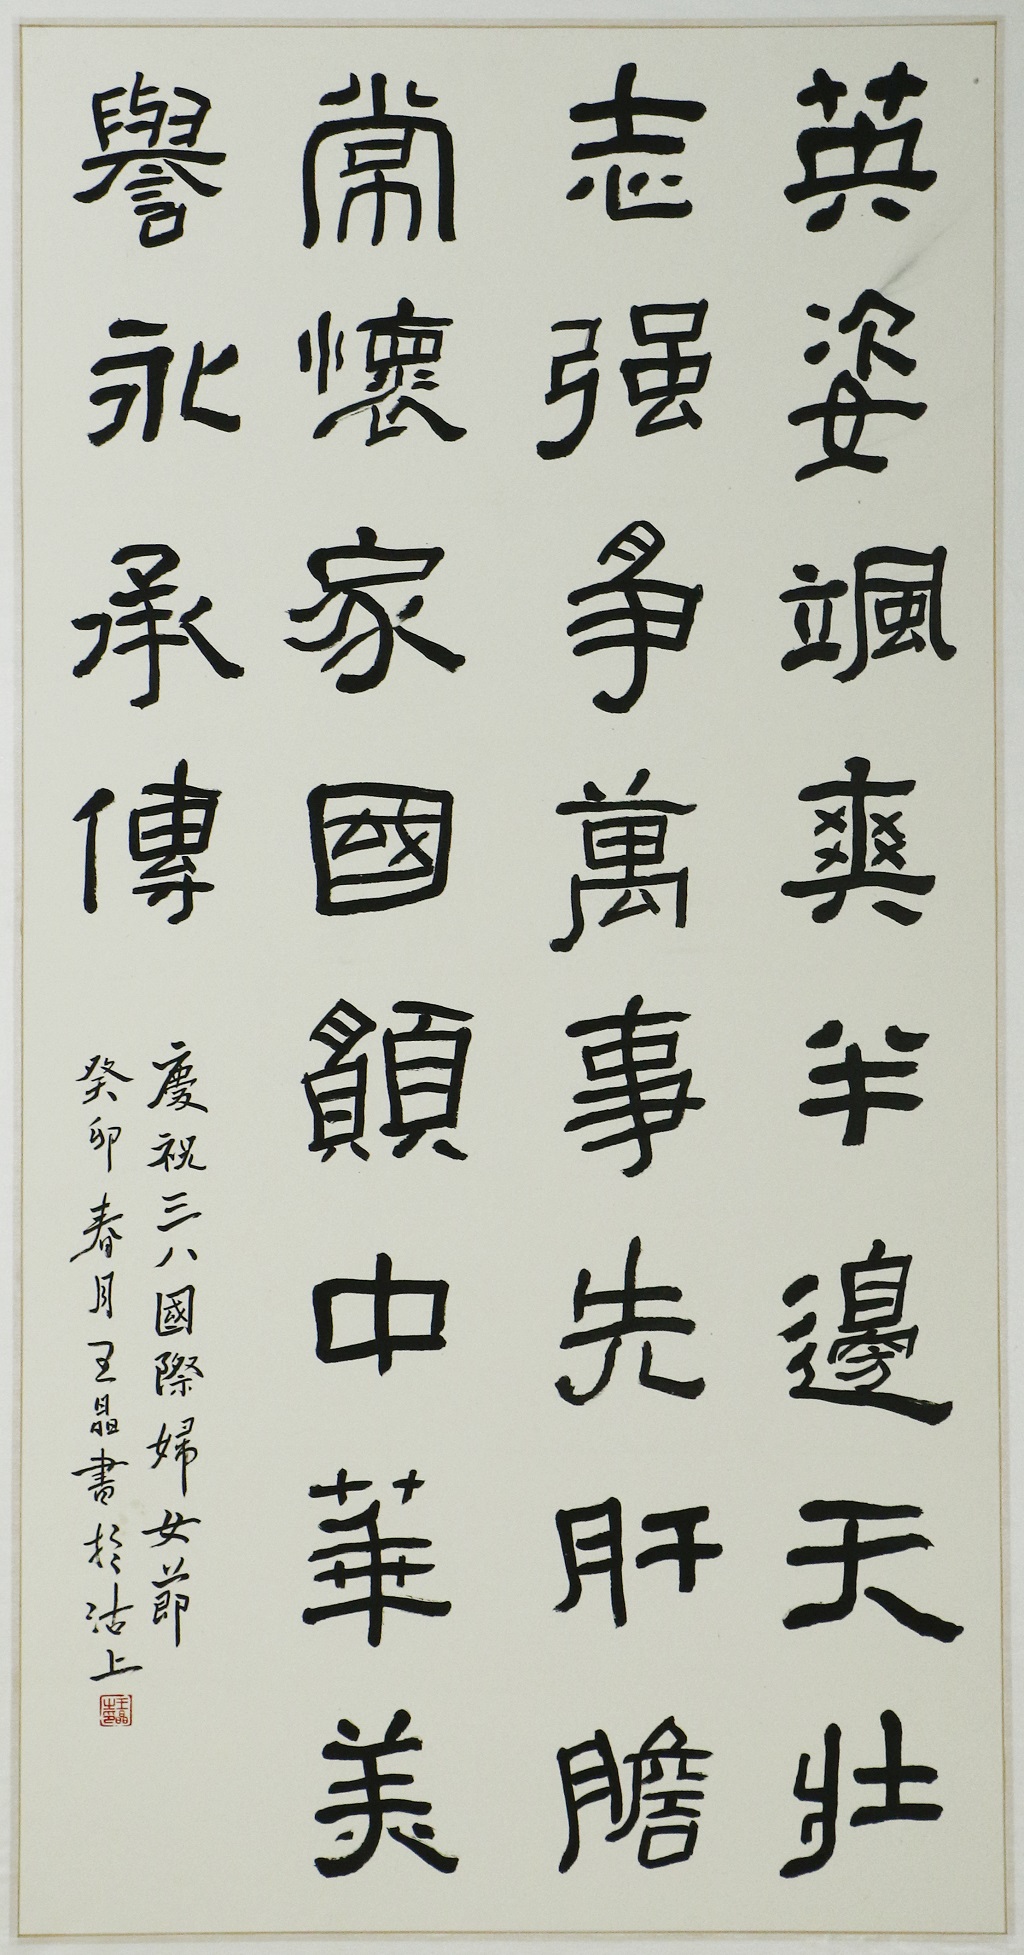 英姿颯爽半邊天壯
志强爭萬事先肝膽
常懷家國顧中華美
譽永承傳
慶祝三八國際婦女節
癸卯春月王晶書於沽上